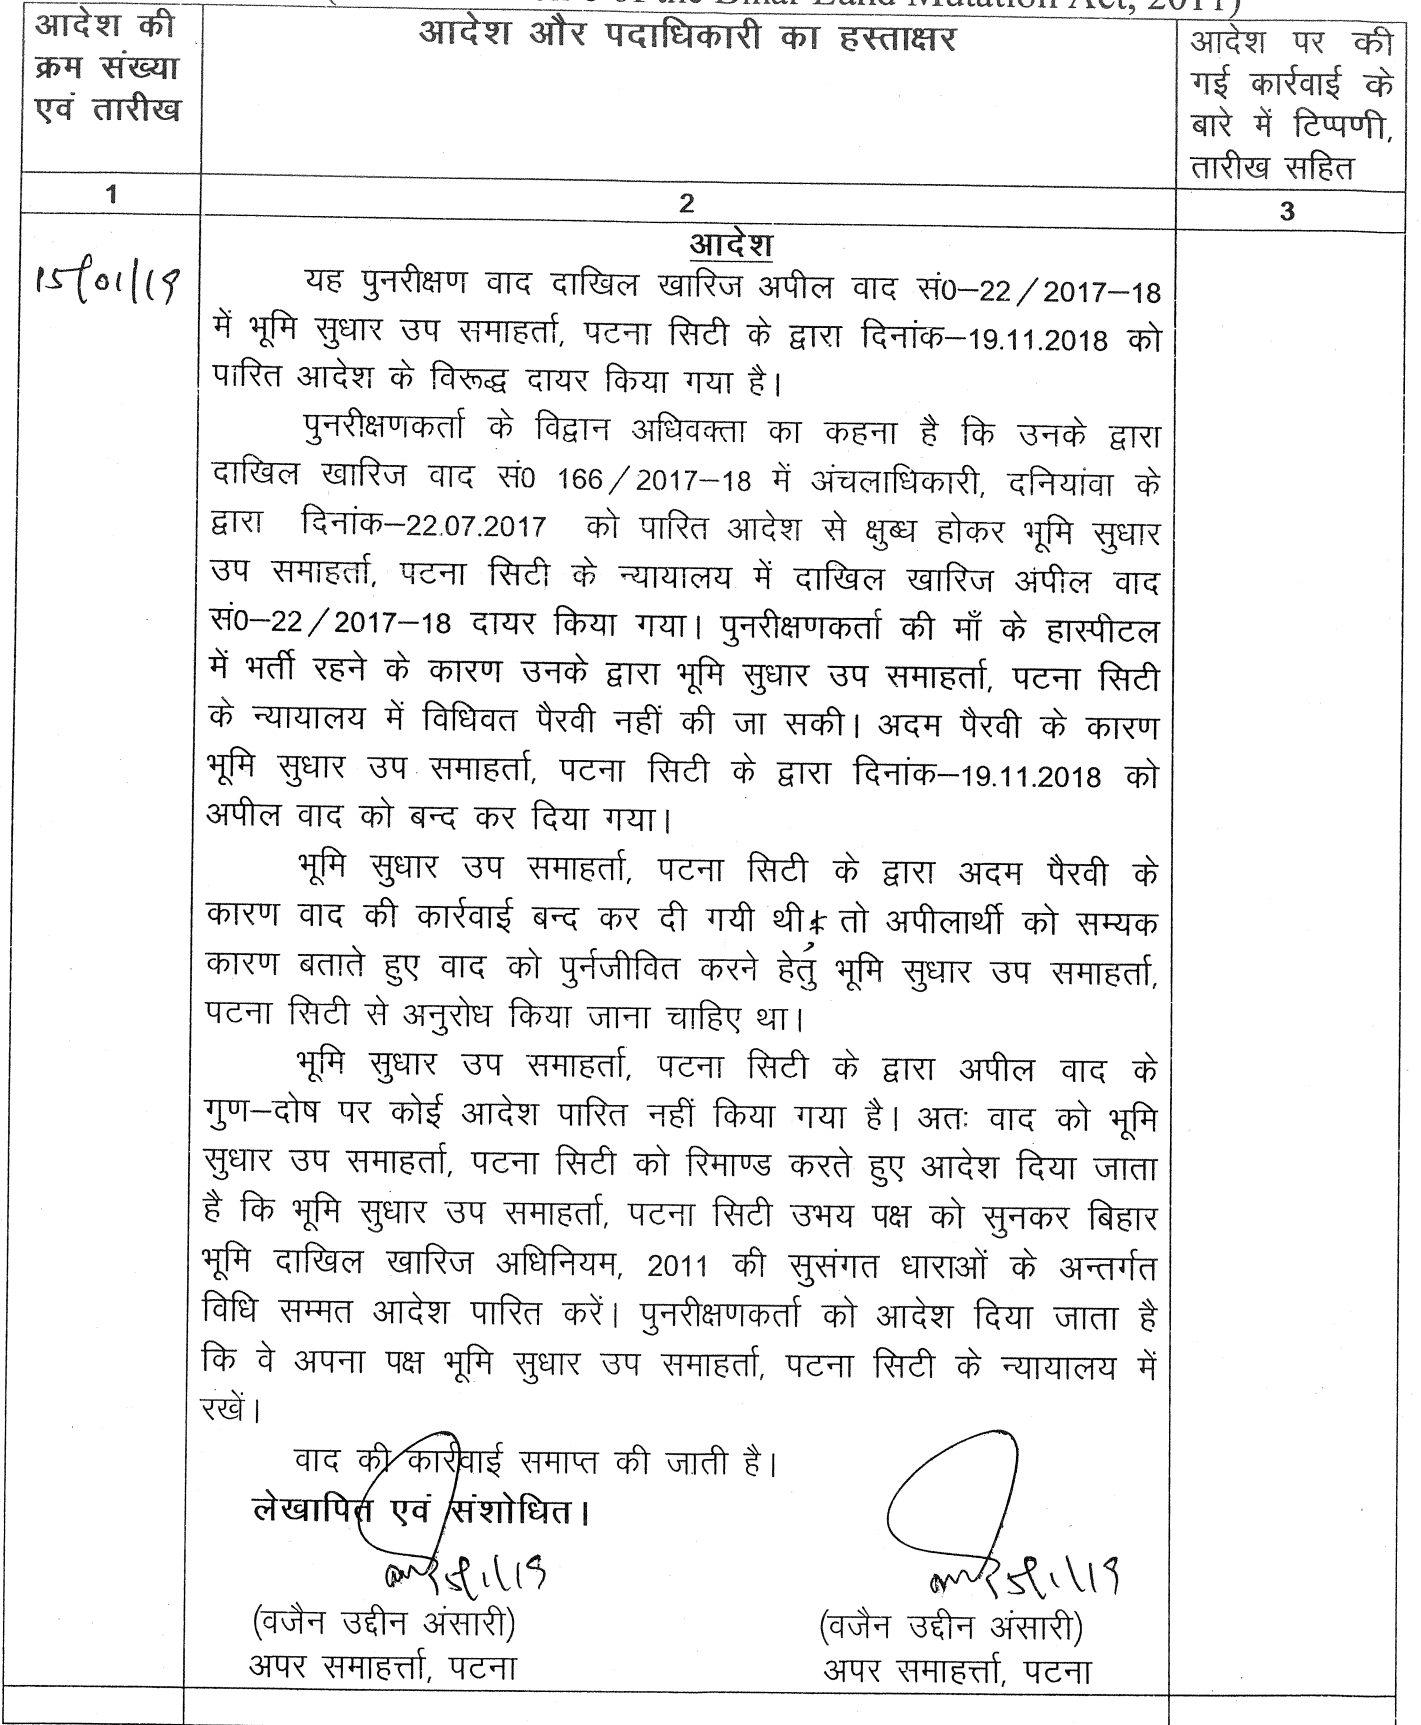 of the Bihar Land Mutation Act, 2011)
आदेश की
क्रम संख्या
एवं तारीख
आदेश और पदाधिकारी का हस्ताक्षर
आदेश पर की
गई कार्रवाई के
बारे में टिप्पणी,
तारीख सहित
1
2
3
आदेश
15/01/19
यह पुनरीक्षण वाद दाखिल खारिज अपील वाद सं0–22/2017–18
में भूमि सुधार उप समाहर्ता, पटना सिटी के द्वारा दिनांक–19.11.2018 को
पारित आदेश के विरूद्ध दायर किया गया है।
पुनरीक्षणकर्ता के विद्वान अधिवक्ता का कहना है कि उनके द्वारा
दाखिल खारिज वाद सं0 166/2017–18 में अंचलाधिकारी, दनियांवा के
द्वारा दिनांक–22.07.2017 को पारित आदेश से क्षुब्ध होकर भूमि सुधार
उप समाहर्ता, पटना सिटी के न्यायालय में दाखिल खारिज अपील वाद
सं0–22/2017–18 दायर किया गया। पुनरीक्षणकर्ता की माँ के हास्पीटल
में भर्ती रहने के कारण उनके द्वारा भूमि सुधार उप समाहर्ता, पटना सिटी
के न्यायालय में विधिवत पैरवी नहीं की जा सकी। अदम पैरवी के कारण
भूमि सुधार उप समाहर्ता, पटना सिटी के द्वारा दिनांक–19.11.2018 को
अपील वाद को बन्द कर दिया गया।
भूमि सुधार उप समाहर्ता, पटना सिटी के द्वारा अदम पैरवी के
कारण वाद की कार्रवाई बन्द कर दी गयी थी, तो अपीलार्थी को सम्यक
कारण बताते हुए वाद को पुर्नजीवित करने हेतु भूमि सुधार उप समाहर्ता,
पटना सिटी से अनुरोध किया जाना चाहिए था।
भूमि सुधार उप समाहर्ता, पटना सिटी के द्वारा अपील वाद के
गुण–दोष पर कोई आदेश पारित नहीं किया गया है। अतः वाद को भूमि
सुधार उप समाहर्ता, पटना सिटी को रिमाण्ड करते हुए आदेश दिया जाता
है कि भूमि सुधार उप समाहर्ता, पटना सिटी उभय पक्ष को सुनकर बिहार
भूमि दाखिल खारिज अधिनियम, 2011 की सुसंगत धाराओं के अन्तर्गत
विधि सम्मत आदेश पारित करें। पुनरीक्षणकर्ता को आदेश दिया जाता है
कि वे अपना पक्ष भूमि सुधार उप समाहर्ता, पटना सिटी के न्यायालय में
रखें।
वाद की कार्रवाई समाप्त की जाती है।
लेखापित एवं संशोधित।
(वजैन उद्दीन अंसारी) (वजैन उद्दीन अंसारी)
अपर समाहर्त्ता, पटना अपर समाहर्त्ता, पटना